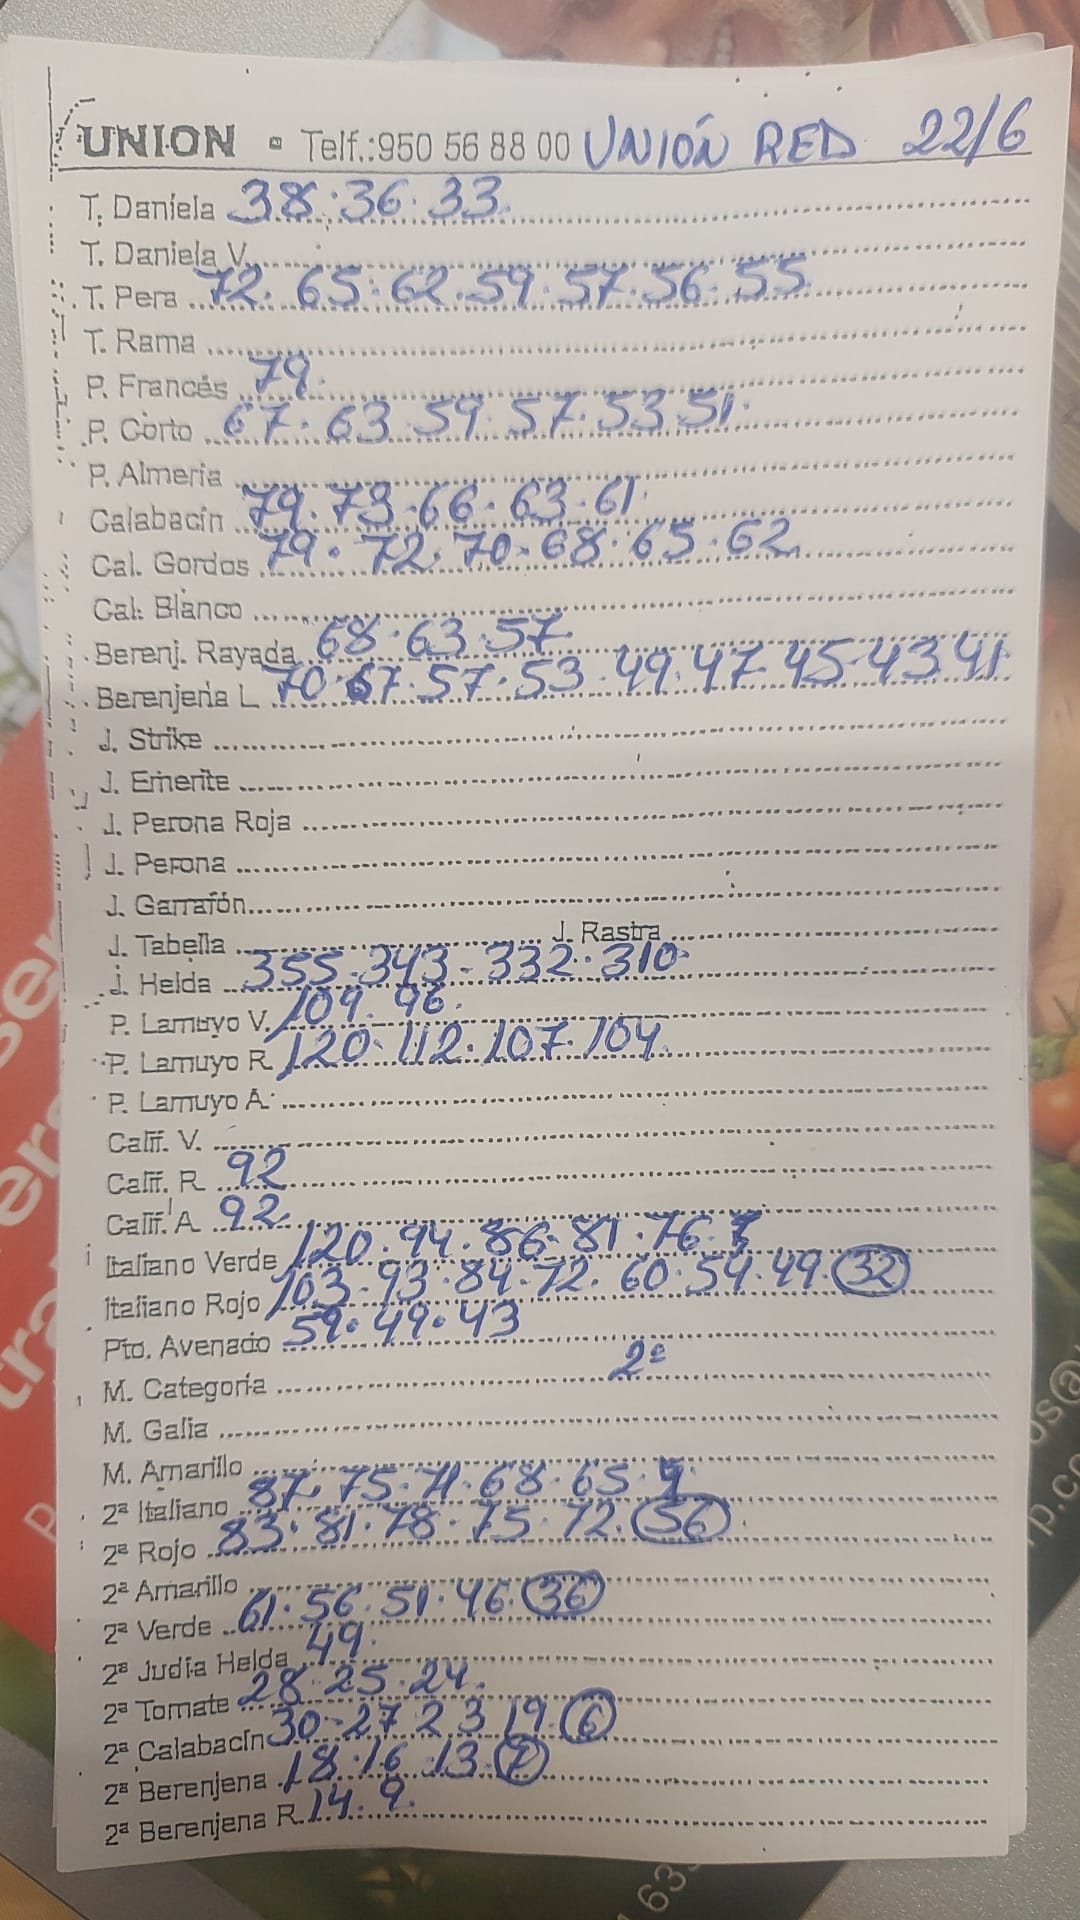 UNION • Telf.:950 56 88 00 UNIÓN RED 22/6
T. Daniela 38.36.33
T. Daniela V.
T. Pera 72.65.62.59.57.56.55
T. Rama
P. Francés 79.
P. Corto 67.63.59.57.53.51.
P. Almería
Calabacín 79.73.66.63.61
Cal. Gordos 79.72.70.68.65.62
Cal. Blanco
Berenj. Rayada 68.63.57
Berenjena L 70.67.57.53.49.47.45.43.41
J. Strike
J. Emerite
J. Perona Roja
J. Perona
J. Garrafón
J. Tabella J. Rastra
J. Helda 355.343.332.310
P. Lamuyo V. 109.96.
P. Lamuyo R 120.112.107.104
P. Lamuyo A.
Calif. V.
Calif. R 92
Calif. A 92
Italiano Verde 120.94.86.81.76.
Italiano Rojo 103.93.84.72.60.54.49.32
Pto. Avenado 59.49.43
M. Categoría 2ª
M. Galia
M. Amarillo
2ª Italiano 87.75.71.68.65.
2ª Rojo 83.81.78.75.72.56.
2ª Amarillo
2ª Verde 61.56.51.46.36
2ª Judía Helda 49.
2ª Tomate 28.25.24.
2ª Calabacín 30-27 23 19.6
2ª Berenjena 18.16.13.7
2ª Berenjena R. 14.9.